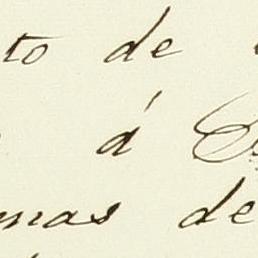 to de
á
mas de